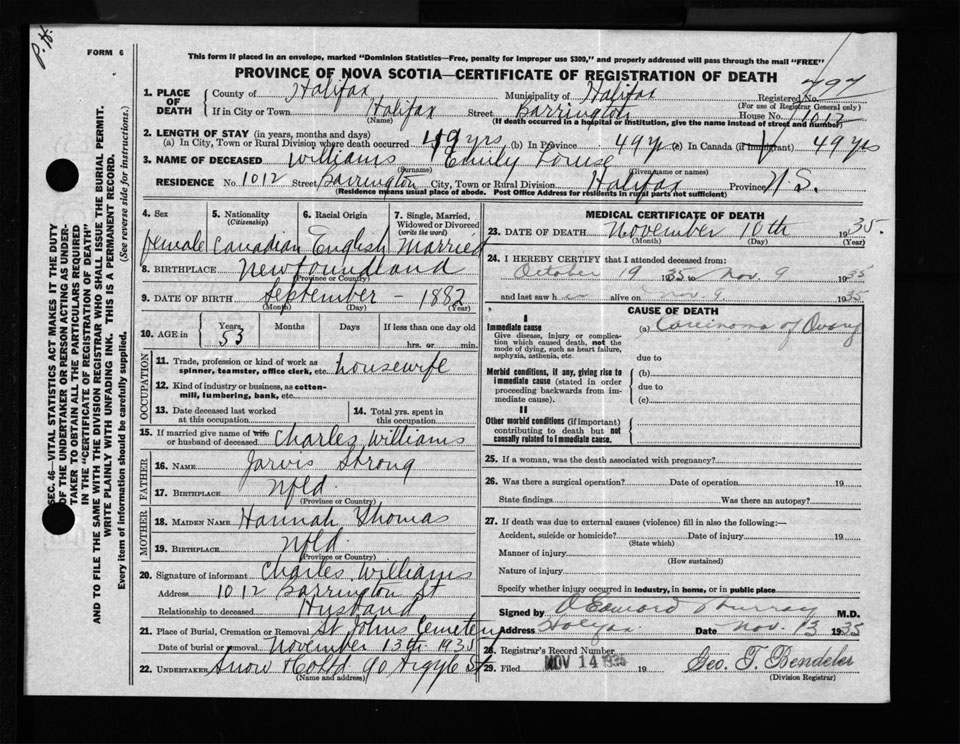 P.H.
FORM 6
This form if placed in an envelope, marked "Dominion Statistics—Free, penalty for improper use $300," and properly addressed will pass through the mail "FREE"
PROVINCE OF NOVA SCOTIA—CERTIFICATE OF REGISTRATION OF DEATH
1. PLACE OF DEATH County of Halifax Municipality of Halifax Registered No. 797
(For use of Registrar General only)
If in City or Town Halifax Street Barrington House No. 1012
(Name) (If death occurred in a hospital or institution, give the name instead of street and number)
2. LENGTH OF STAY (in years, months and days)
(a) In City, Town or Rural Division where death occurred 49 yrs (b) In Province 49 yrs (c) In Canada (if immigrant) 49 yrs
3. NAME OF DECEASED Williams Emily Louise
(Surname) (Given name or names)
RESIDENCE No. 1012 Street Barrington City, Town or Rural Division Halifax Province N.S.
(Residence means usual place of abode. Post Office Address for residents in rural parts not sufficient)
4. Sex 5. Nationality (Citizenship) 6. Racial Origin 7. Single, Married, Widowed or Divorced (write the word)
female Canadian English Married
8. BIRTHPLACE Newfoundland
(Province or Country)
9. DATE OF BIRTH September - 1882
(Month) (Day) (Year)
10. AGE in Years Months Days If less than one day old
53 hrs. or min.
OCCUPATION
11. Trade, profession or kind of work as spinner, teamster, office clerk, etc. housewife
12. Kind of industry or business, as cotton-mill, lumbering, bank, etc.
13. Date deceased last worked at this occupation
14. Total yrs. spent in this occupation
15. If married give name of wife or husband of deceased Charles Williams
FATHER
16. NAME Jarvis Strong
17. BIRTHPLACE Nfld.
(Province or Country)
MOTHER
18. MAIDEN NAME Hannah Thomas
19. BIRTHPLACE Nfld.
(Province or Country)
20. Signature of informant Charles Williams
Address 1012 Barrington St
Relationship to deceased Husband
21. Place of Burial, Cremation or Removal St Johns Cemetery
Date of burial or removal November 13th 1935
22. UNDERTAKER Snow & Co Ltd 90 Argyle St
(Name and address)
MEDICAL CERTIFICATE OF DEATH
23. DATE OF DEATH November 10th 1935.
(Month) (Day) (Year)
24. I HEREBY CERTIFY that I attended deceased from:
October 19 1935 to Nov. 9 1935
and last saw h alive on Nov. 9. 1935
CAUSE OF DEATH
I
Immediate cause (a) Carcinoma of Ovary
Give disease, injury or complication which caused death, not the mode of dying, such as heart failure, asphyxia, asthenia, etc.
due to
Morbid conditions, if any, giving rise to immediate cause (stated in order proceeding backwards from immediate cause).
(b)
due to
(c)
II
Other morbid conditions (if important) contributing to death but not causally related to immediate cause.
25. If a woman, was the death associated with pregnancy?
26. Was there a surgical operation? Date of operation 19
State findings Was there an autopsy?
27. If death was due to external causes (violence) fill in also the following:—
Accident, suicide or homicide? Date of injury 19
(State which)
Manner of injury
(How sustained)
Nature of injury
Specify whether injury occurred in industry, in home, or in public place
Signed by Edward Murray M.D.
Address Halifax. Date Nov. 13 1935
28. Registrar's Record Number
29. Filed NOV 14 1935 19 Geo. T. Bendeler
(Division Registrar)
SEC. 46—VITAL STATISTICS ACT MAKES IT THE DUTY
OF THE UNDERTAKER OR PERSON ACTING AS UNDER-
TAKER TO OBTAIN ALL THE PARTICULARS REQUIRED
IN THE "CERTIFICATE OF REGISTRATION OF DEATH"
AND TO FILE THE SAME WITH THE DIVISION REGISTRAR WHO SHALL ISSUE THE BURIAL PERMIT.
WRITE PLAINLY WITH UNFADING INK. THIS IS A PERMANENT RECORD.
Every item of information should be carefully supplied. (See reverse side for instructions.)